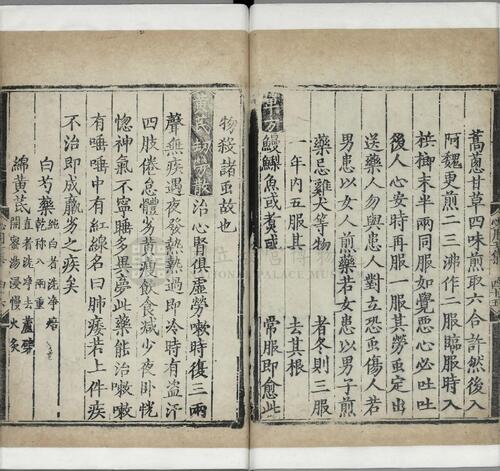 蒿蔥甘草四味煎取六合許然後入
阿魏更煎二三沸作二服臨服時入
梹榔末半兩同服如覺惡心必吐吐
後人心安時再服一服其勞䖝定出
送藥人勿與患人對立恐䖝傷人若
男患以女人煎藥若女患以男子煎
藥忌雞犬等物
者冬則三服
一年內五服其
去其根
單方鰻鱺魚或煑或
常服即愈此
物殺諸䖝故也
黃芪刼勞散治心腎俱虛勞嗽時復三兩
聲無疾遇夜發熱熱過即冷時有盜汗
四肢倦怠體劣黃瘦飲食減少夜卧恍
惚神氣不寧睡多異夢此藥能治嗽嗽
有唾唾中有紅線名曰肺痿若上件疾
不治即成羸劣之疾矣
白芍藥
純白者洗淨焙
乾秤六兩重
綿黃芪
直者洗淨去蘆劈
開蜜湯浸慢火炙